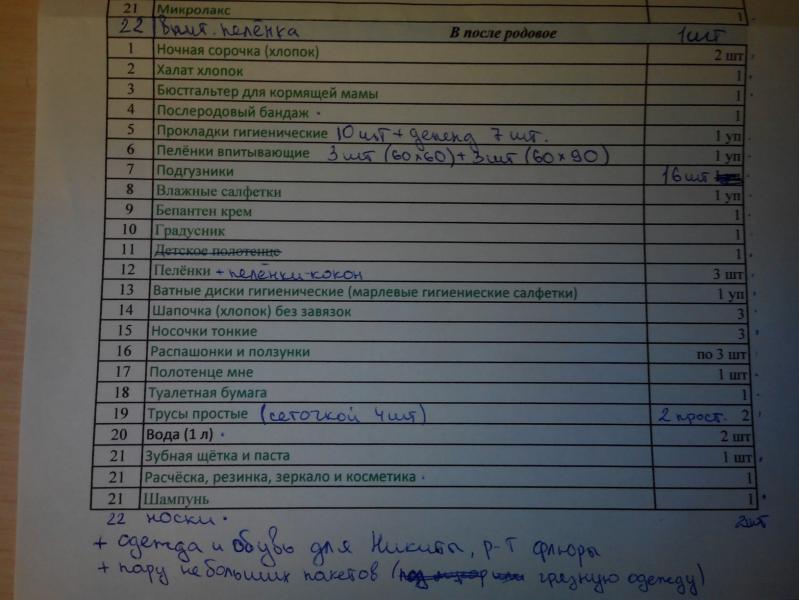 21 Микролакс 1
22 впит. пелёнка 1шт
В после родовое
1 Ночная сорочка (хлопок) 2 шт
2 Халат хлопок 1
3 Бюстгальтер для кормящей мамы 1
4 Послеродовый бандаж 1
5 Прокладки гигиенические 10 шт + депенд 7 шт. 1 уп
6 Пелёнки впитывающие 3 шт (60×60) + 3 шт (60×90) 1 уп
7 Подгузники 16 шт
8 Влажные салфетки 1 уп
9 Бепантен крем 1
10 Градусник 1
11 Детское полотенце 1
12 Пелёнки + пелёнки-кокон 3 шт
13 Ватные диски гигиенические (марлевые гигиениеские салфетки) 1 уп
14 Шапочка (хлопок) без завязок 3
15 Носочки тонкие 3
16 Распашонки и ползунки по 3 шт
17 Полотенце мне 1 шт
18 Туалетная бумага 1
19 Трусы простые (сеточкой 4 шт) 2 прост. 2
20 Вода (1 л) 2 шт
21 Зубная щётка и паста 1 шт
21 Расчёска, резинка, зеркало и косметика 1
21 Шампунь 1
22 носки 2шт
+ одежда и обувь для Никиты, р-т флюры
+ пару небольших пакетов (под грязную одежду)